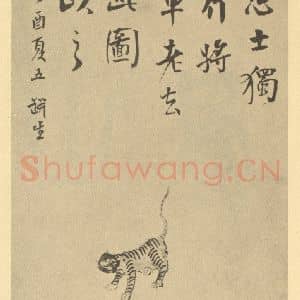 志士獨
行將
軍老去
此圖
以之
酉夏五 諤生
Shufawang.CN